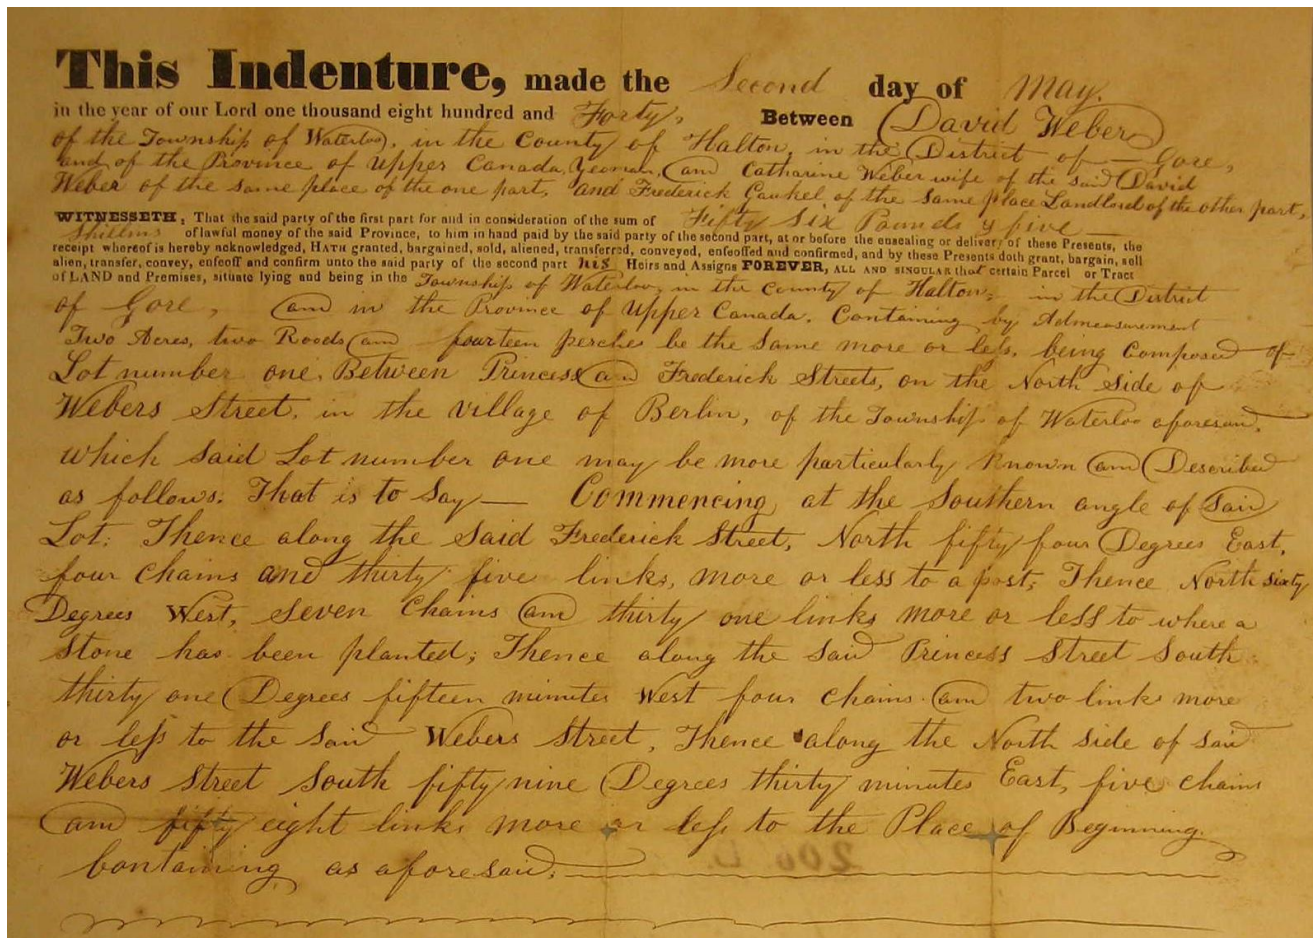 This Indenture, made the Second day of May.
in the year of our Lord one thousand eight hundred and Forty, Between David Weber
of the Township of Waterloo, in the County of Halton, in the District of — Gore,
and of the Province of Upper Canada, Yeoman, and Catharine Weber wife of the said David
Weber of the same place of the one part, and Frederick Gaukel of the Same place Landlord of the other part,
WITNESSETH, That the said party of the first part for and in consideration of the sum of Fifty Six Pounds & five —
Shillins of lawful money of the said Province, to him in hand paid by the said party of the second part, at or before the ensealing or delivery of these Presents, the
receipt whereof is hereby acknowledged, HATH granted, bargained, sold, aliened, transferred, conveyed, enfeoffed and confirmed, and by these Presents doth grant, bargain, sell
alien, transfer, convey, enfeoff and confirm unto the said party of the second part his Heirs and Assigns FOREVER, ALL AND SINGULAR that certain Parcel or Tract
of LAND and Premises, situate lying and being in the Township of Waterloo, in the County of Halton, in the District
of Gore, and in the Province of Upper Canada. Containing by Admeasurement
Two Acres, two Roods and fourteen perches be the Same more or less, being Composed of
Lot number one, Between Princess and Frederick Streets, on the North Side of
Webers Street, in the Village of Berlin, of the Township of Waterloo aforesaid.
which Said Lot number one may be more particularly Known and Described
as follows. That is to Say — Commencing at the Southern angle of Said
Lot; Thence along the Said Frederick Street, North fifty four Degrees East,
four Chains and thirty five links, more or less to a post; Thence North sixty
Degrees West, Seven Chains and thirty one links more or less to where a
Stone has been planted; Thence along the Said Princess Street South
thirty one Degrees fifteen minutes West four chains and two links more
or less to the Said Webers Street, Thence along the North Side of Said
Webers Street South fifty nine Degrees thirty minutes East, five chains
and fifty eight links more or less to the Place of Beginning.
Containing as aforesaid.